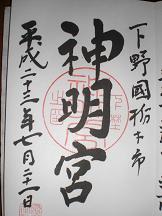 下野國栃木市
神明宮
平成二十三年七月二十一日